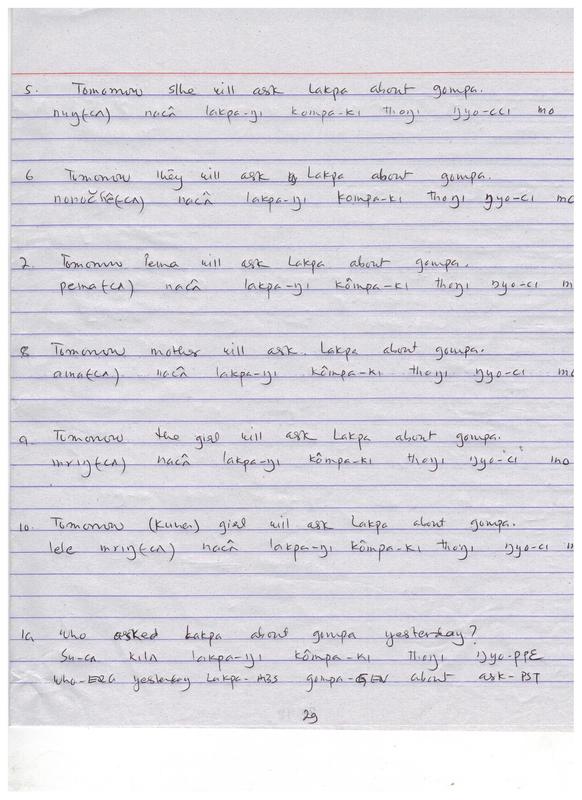 5. Tomorrow s/he will ask Lakpa about gompa.
nuŋ(cʌ) nacâ lakpa-ŋı kompa-kı thoŋı ŋyo-ccı mo
6 Tomorrow they will ask Lakpa about gompa.
nacâ lakpa-ŋı kompa-kı thoŋı ŋyo-cı mo
7. Tomorrow Pema will ask Lakpa about gompa.
pema(cʌ) nacâ lakpa-ŋı kômpa-kı thoŋı ŋyo-cı m
8. Tomorrow mother will ask Lakpa about gompa.
ama(cʌ) nacâ lakpa-ŋı kômpa-kı thoŋı ŋyo-cı mo
9. Tomorrow the girl will ask Lakpa about gompa.
mrıŋ(cʌ) nacâ lakpa-ŋı kômpa-kı thoŋı ŋyo-cı mo
10. Tomorrow girl will ask Lakpa about gompa.
lele mrıŋ(cʌ) nacâ lakpa-ŋı kômpa-kı thoŋı ŋyo-cı
1a Who asked Lakpa about gompa yesterday?
Su-cʌ lakpa-ŋı kômpa-kı thoŋı ŋyo-ppɛ
who-ERG yesterday Lakpa-ABS gompa-GEN about ask-PST
29